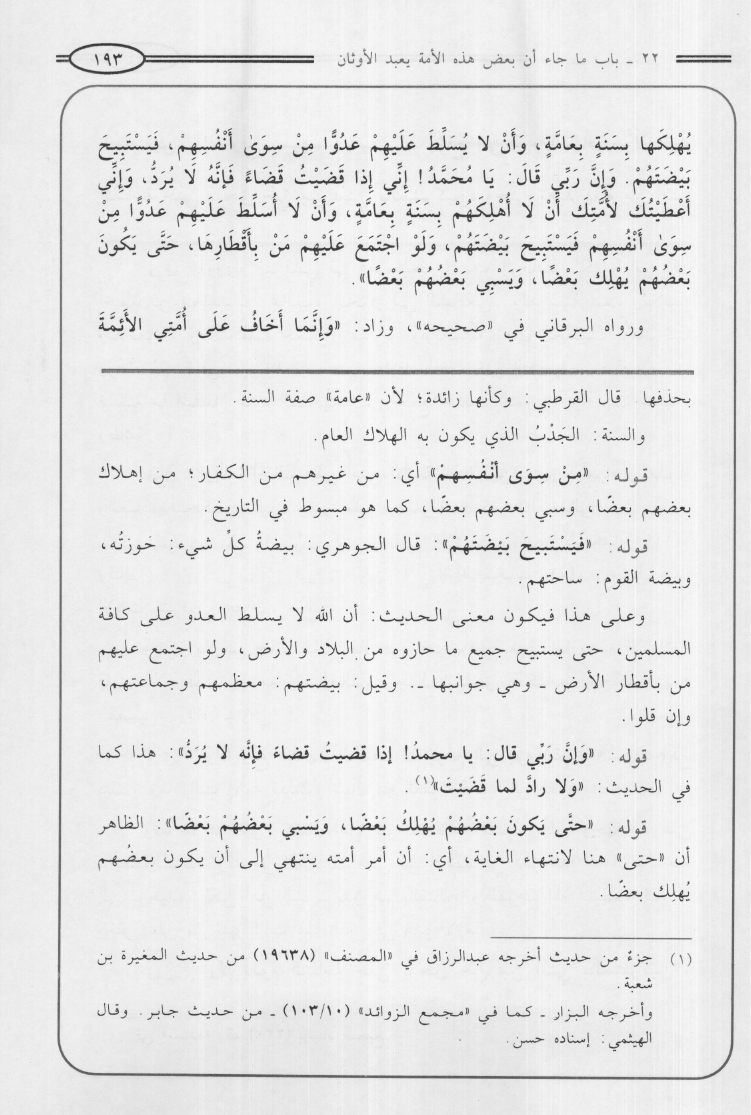 ٢٢ ـ باب ما جاء أن بعض هذه الأمة يعبد الأوثان
١٩٣
يُهْلِكَها بِسَنَةٍ بِعَامَّةٍ، وَأَنْ لا يُسَلِّطَ عَلَيْهِمْ عَدُوًّا مِنْ سِوَىٰ أَنْفُسِهِمْ، فَيَسْتَبِيحَ
بَيْضَتَهُمْ. وَإِنَّ رَبِّي قَالَ: يَا مُحَمَّدُ! إِنِّي إِذا قَضَيْتُ قَضَاءً فَإِنَّهُ لَا يُرَدُّ، وَإِنِّي
أَعْطَيْتُكَ لأُمَّتِكَ أَنْ لَا أُهْلِكَهُمْ بِسَنَةٍ بِعَامَّةٍ، وَأَنْ لَا أُسَلِّطَ عَلَيْهِمْ عَدُوًّا مِنْ
سِوَىٰ أَنْفُسِهِمْ فَيَسْتَبِيحَ بَيْضَتَهُمْ، وَلَوْ اجْتَمَعَ عَلَيْهِمْ مَنْ بِأَقْطَارِهَا، حَتَّى يَكُونَ
بَعْضُهُمْ يُهْلِك بَعْضًا، وَيَسْبِي بَعْضُهُمْ بَعْضًا».
ورواه البرقاني في «صحيحه»، وزاد: «وَإِنَّمَا أَخَافُ عَلَى أُمَّتِي الأَئِمَّةَ
بحذفها قال القرطبي: وكأنها زائدة؛ لأن «عامة» صفة السنة.
والسنة: الجَدْبُ الذي يكون به الهلاك العام.
قوله: «مِنْ سِوَى أنْفُسِهِمْ» أي: من غيرهم من الكفار؛ من إهلاك
بعضهم بعضًا، وسبي بعضهم بعضًا، كما هو مبسوط في التاريخ.
قوله: «فَيَسْتَبيحَ بَيْضَتَهُمْ»: قال الجوهري: بيضةُ كلِّ شيء: حَوزتُه،
وبيضة القوم: ساحتهم.
وعلى هذا فيكون معنى الحديث: أن الله لا يسلط العدو على كافة
المسلمين، حتى يستبيح جميع ما حازوه من البلاد والأرض، ولو اجتمع عليهم
من بأقطار الأرض ـ وهي جوانبها ـ. وقيل: بيضتهم: معظمهم وجماعتهم،
وإن قلوا.
قوله: «وَإنَّ رَبِّي قال: يا محمدُ! إذا قضيتُ قضاءً فإنَّه لا يُرَدُّ»: هذا كما
في الحديث: «وَلا رادَّ لما قَضَيْتَ»(١).
قوله: «حتَّى يَكونَ بَعْضُهُمْ يُهْلِكُ بَعْضًا، وَيَسْبي بَعْضُهُمْ بَعْضًا»: الظاهر
أن «حتى» هنا لانتهاء الغاية، أي: أن أمر أمته ينتهي إلى أن يكون بعضُهم
يُهلِك بعضًا.
(١) جزءٌ من حديث أخرجه عبدالرزاق في «المصنف» (١٩٦٣٨) من حديث المغيرة بن
شعبة.
وأخرجه البزار ـ كما في «مجمع الزوائد» (١٠/١٠٣) ـ من حديث جابر. وقال
الهيثمي: إسناده حسن.